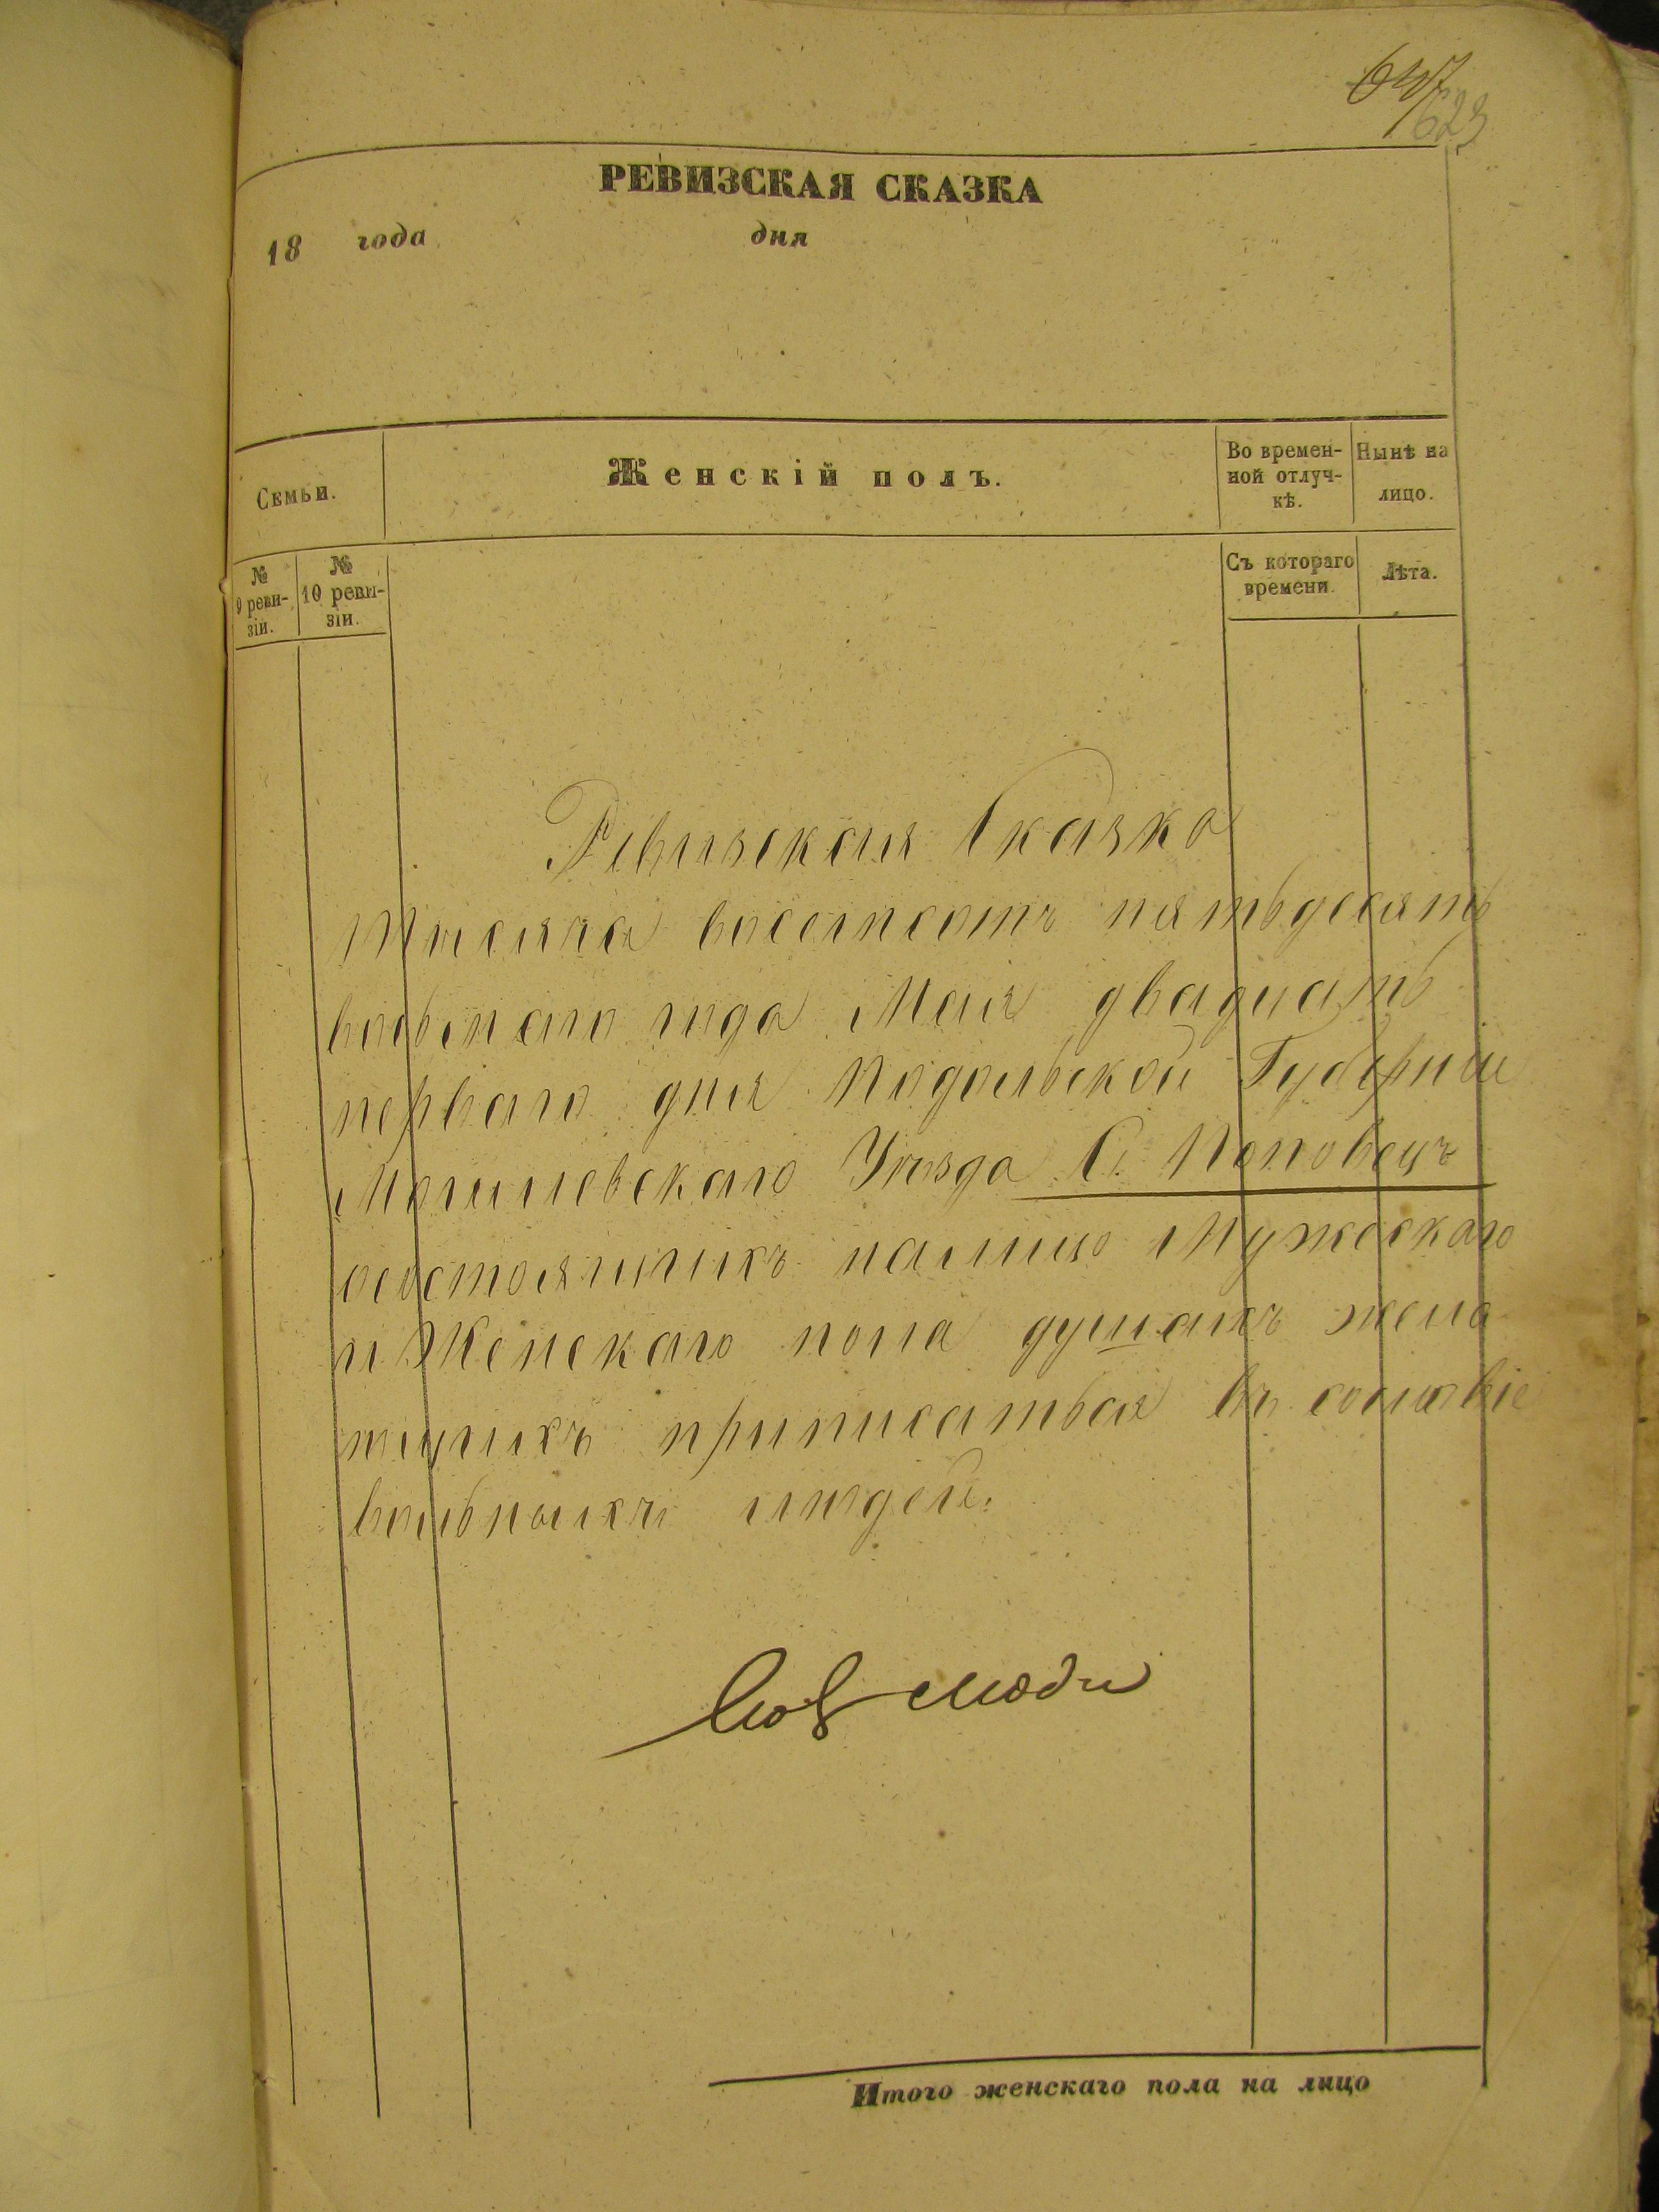 623
РЕВИЗСКАЯ СКАЗКА
18 года дня
Семьи.
Женскій полъ.
Во времен-
ной отлуч-
кѣ.
Нынѣ на
лицо.
№
9 реви-
зіи.
№
10 реви-
зіи.
Съ котораго
времени.
Лѣта.
Ревизская Сказка
Тысяча восемсотъ пятьдесятъ
восьмаго года Мая двадцать
перваго дня Подольской Губерніи
Могилевскаго Уѣзда С. Поповецъ
осостоящихъ налицо Мужескаго
и Женскаго пола душахъ жела
ющихъ приписаться въ сословіе
вольныхъ людей.
люди
Итого женскаго пола на лицо